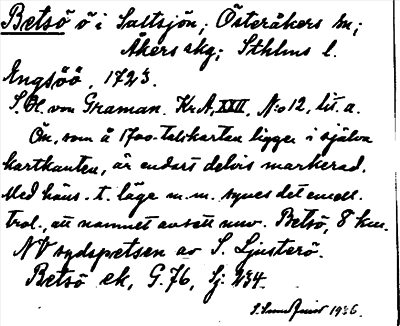 Betsö ö i Saltsjön; Österåkers sn;
Åkers skg; Sthlms l.
Engsöö, 1723.
S. Ol. von Graman. Kr.A, XXIII, No 12, lit. a.
Ön, som å 1700-talskartan ligger i själva
kartkanten, är endast delvis markerad.
Med häns. t. läge m. m. synes det emell.
trol., att namnet avsett nuv. Betsö, 8 km.
NV sydspetsen av S. Ljusterö.
Betsö ek, G. 76, Sj: 234.
1936.